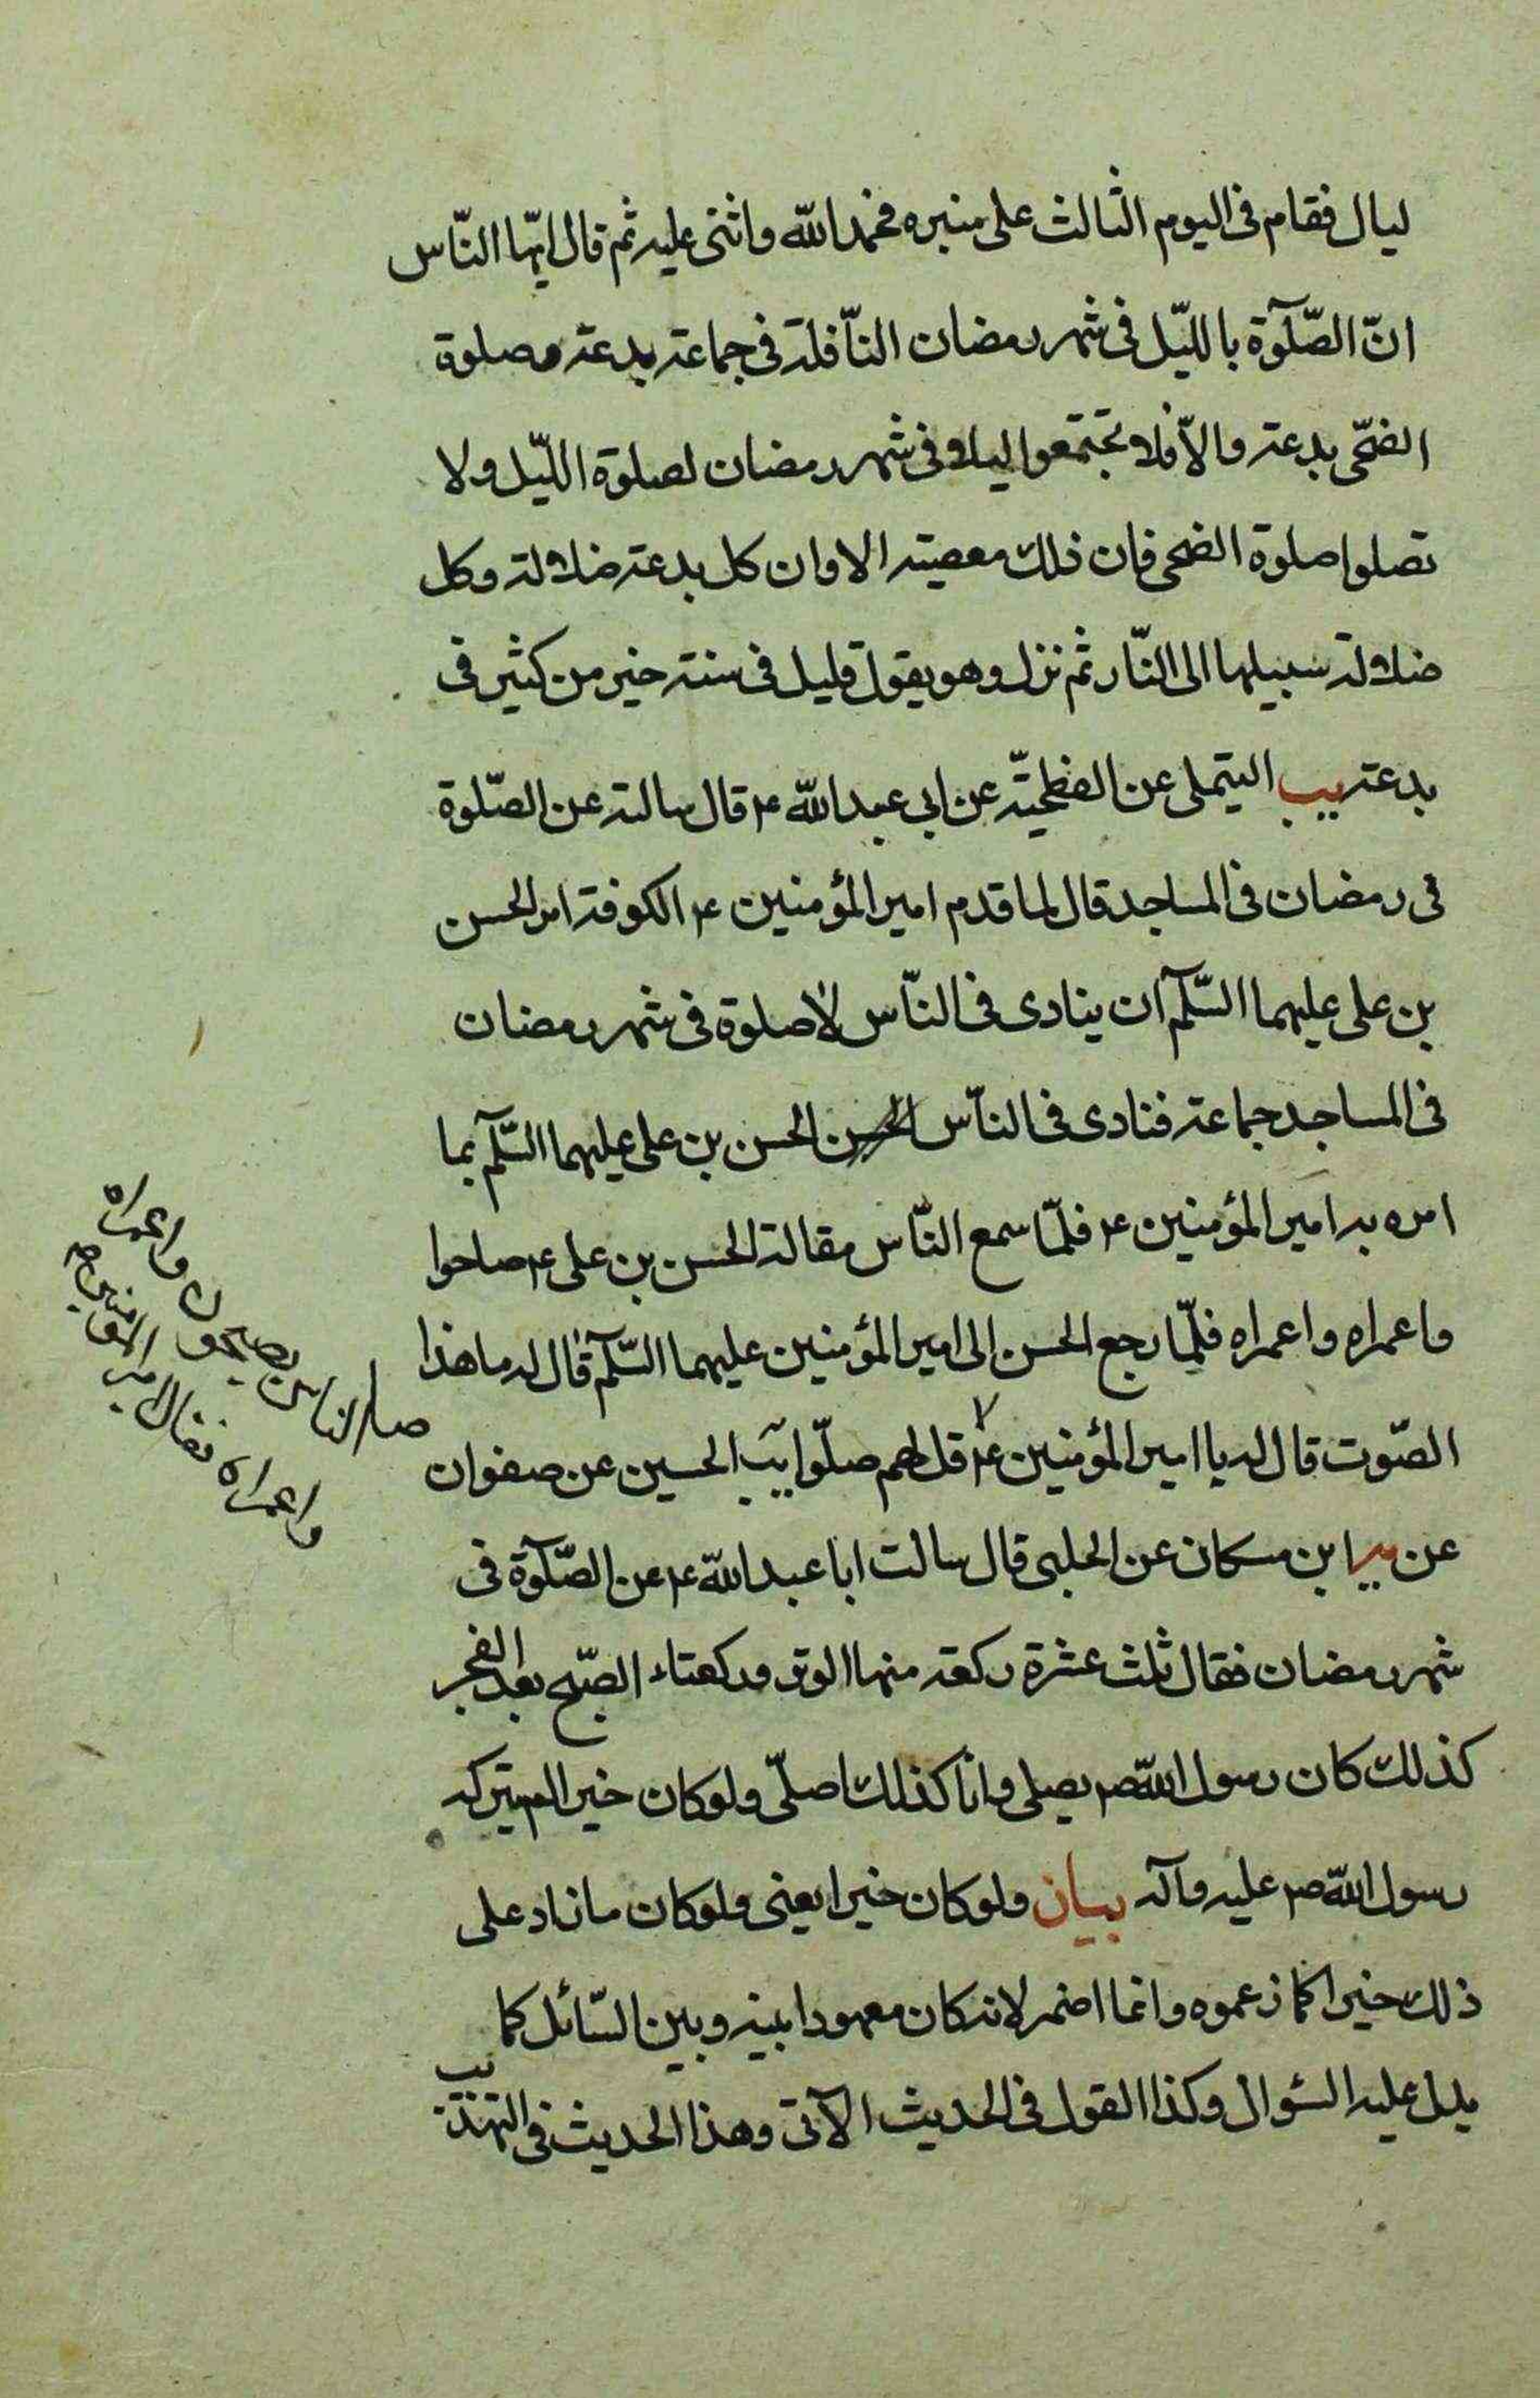 ليال فقام فى اليوم الثالث على منبره فحمد الله واثنى عليه ثم قال ايّها النّاس
انّ الصّلوة بالليّل فى شهر رمضان النّافلة فى جماعة بدعة وصلوة
الضحّى بدعة والاّ فلا تجتمعوا ليلا فى شهر رمضان لصلوة الليّل ولا
تصلوا صلوة الضحى فان ذلك معصية الا وان كل بدعة ضلالة وكل
ضلالة سبيلها الى النّار ثم نزل وهو يقول قليل فى سنة خير من كثير فى
بدعة يب التيملى عن الفطحيّة عن ابى عبد الله ع قال سالته عن الصّلوة
فى رمضان فى المساجد قال لما قدم امير المؤمنين ع الكوفة امر الحسن
بن على عليهما السّلم ان ينادى فى النّاس لا صلوة فى شهر رمضان
فى المساجد جماعة فنادى فى النّاس الحسن الحسن بن على عليهما السّلم بما
امره به امير المؤمنين ع فلمّا سمع النّاس مقالة الحسن بن على ع صاحوا
واعمراه واعمراه فلمّا رجع الحسن الى امير المؤمنين عليهما السّلم قال له ما هذا
الصّوت قال له يا امير المؤمنين ع قل لهم صلّوا يب الحسين عن صفوان
صار الناس يصيحون واعمراه
واعمراه فقال امير المؤمنين ع
عن ابن مسكان عن الحلبى قال سالت ابا عبد الله ع عن الصّلوة فى
شهر رمضان فقال ثلث عشرة ركعة منها الوتر وركعتاء الصّبح بعد الفجر
كذلك كان رسول الله ص يصلى وانا كذلك اصلّى ولو كان خيرا لم يتركه
رسول الله ص عليه وآله بيان ولو كان خيرا يعنى ولو كان ما زاد على
ذلك خيرا كما زعموه وانما اضمر لانه كان معهودا بينه وبين السّائل كما
يدل عليه السّوال وكذا القول فى الحديث الآتى وهذا الحديث فى التهذيب